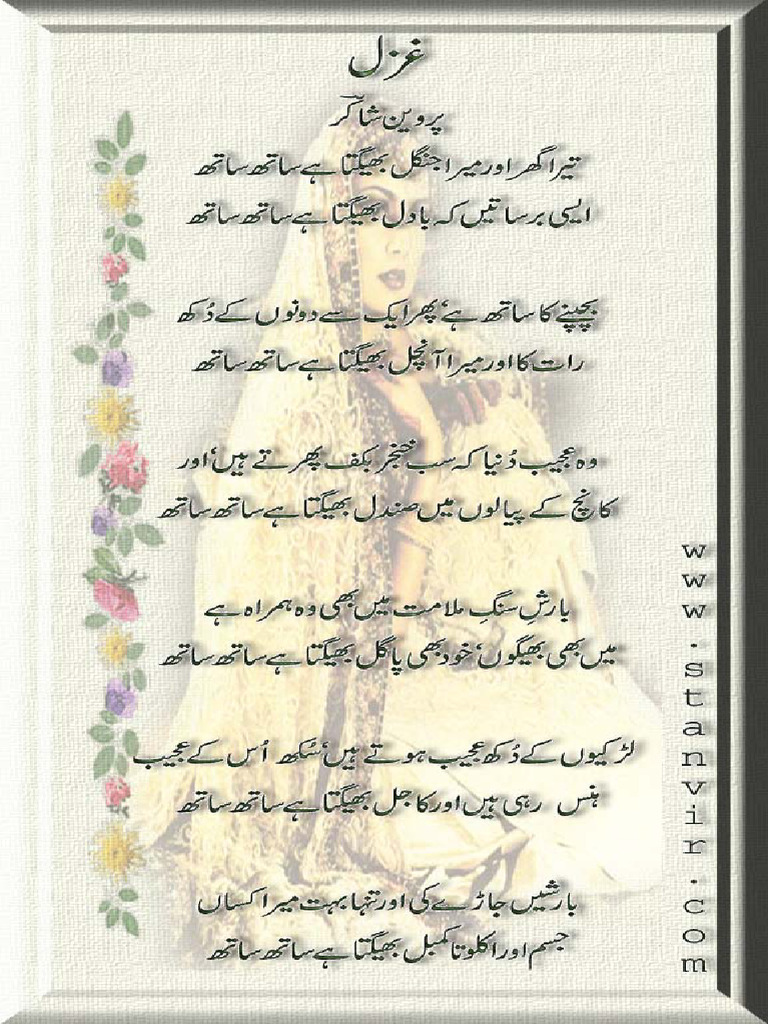 غزل
پروین شاکر
تیرا گھر اور میرا جنگل بھیگتا ہے ساتھ ساتھ
ایسی برساتیں کہ بادل بھیگتا ہے ساتھ ساتھ
بچپنے کا ساتھ ہے، پھر ایک سے دونوں کے دُکھ
رات کا اور میرا آنچل بھیگتا ہے ساتھ ساتھ
وہ عجیب دُنیا کہ سب خنجر بکف پھرتے ہیں، اور
کانچ کے پیالوں میں صندل بھیگتا ہے ساتھ ساتھ
بارشِ سنگِ ملامت میں بھی وہ ہمراہ ہے
میں بھی بھیگوں، خود بھی پاگل بھیگتا ہے ساتھ ساتھ
لڑکیوں کے دُکھ عجیب ہوتے ہیں، سُکھ اُس کے عجیب
ہنس رہی ہیں اور کاجل بھیگتا ہے ساتھ ساتھ
بارشیں جاڑے کی اور تنہا بہت میرا کساں
جسم اور اکلوتا کمبل بھیگتا ہے ساتھ ساتھ
www.stanvir.com